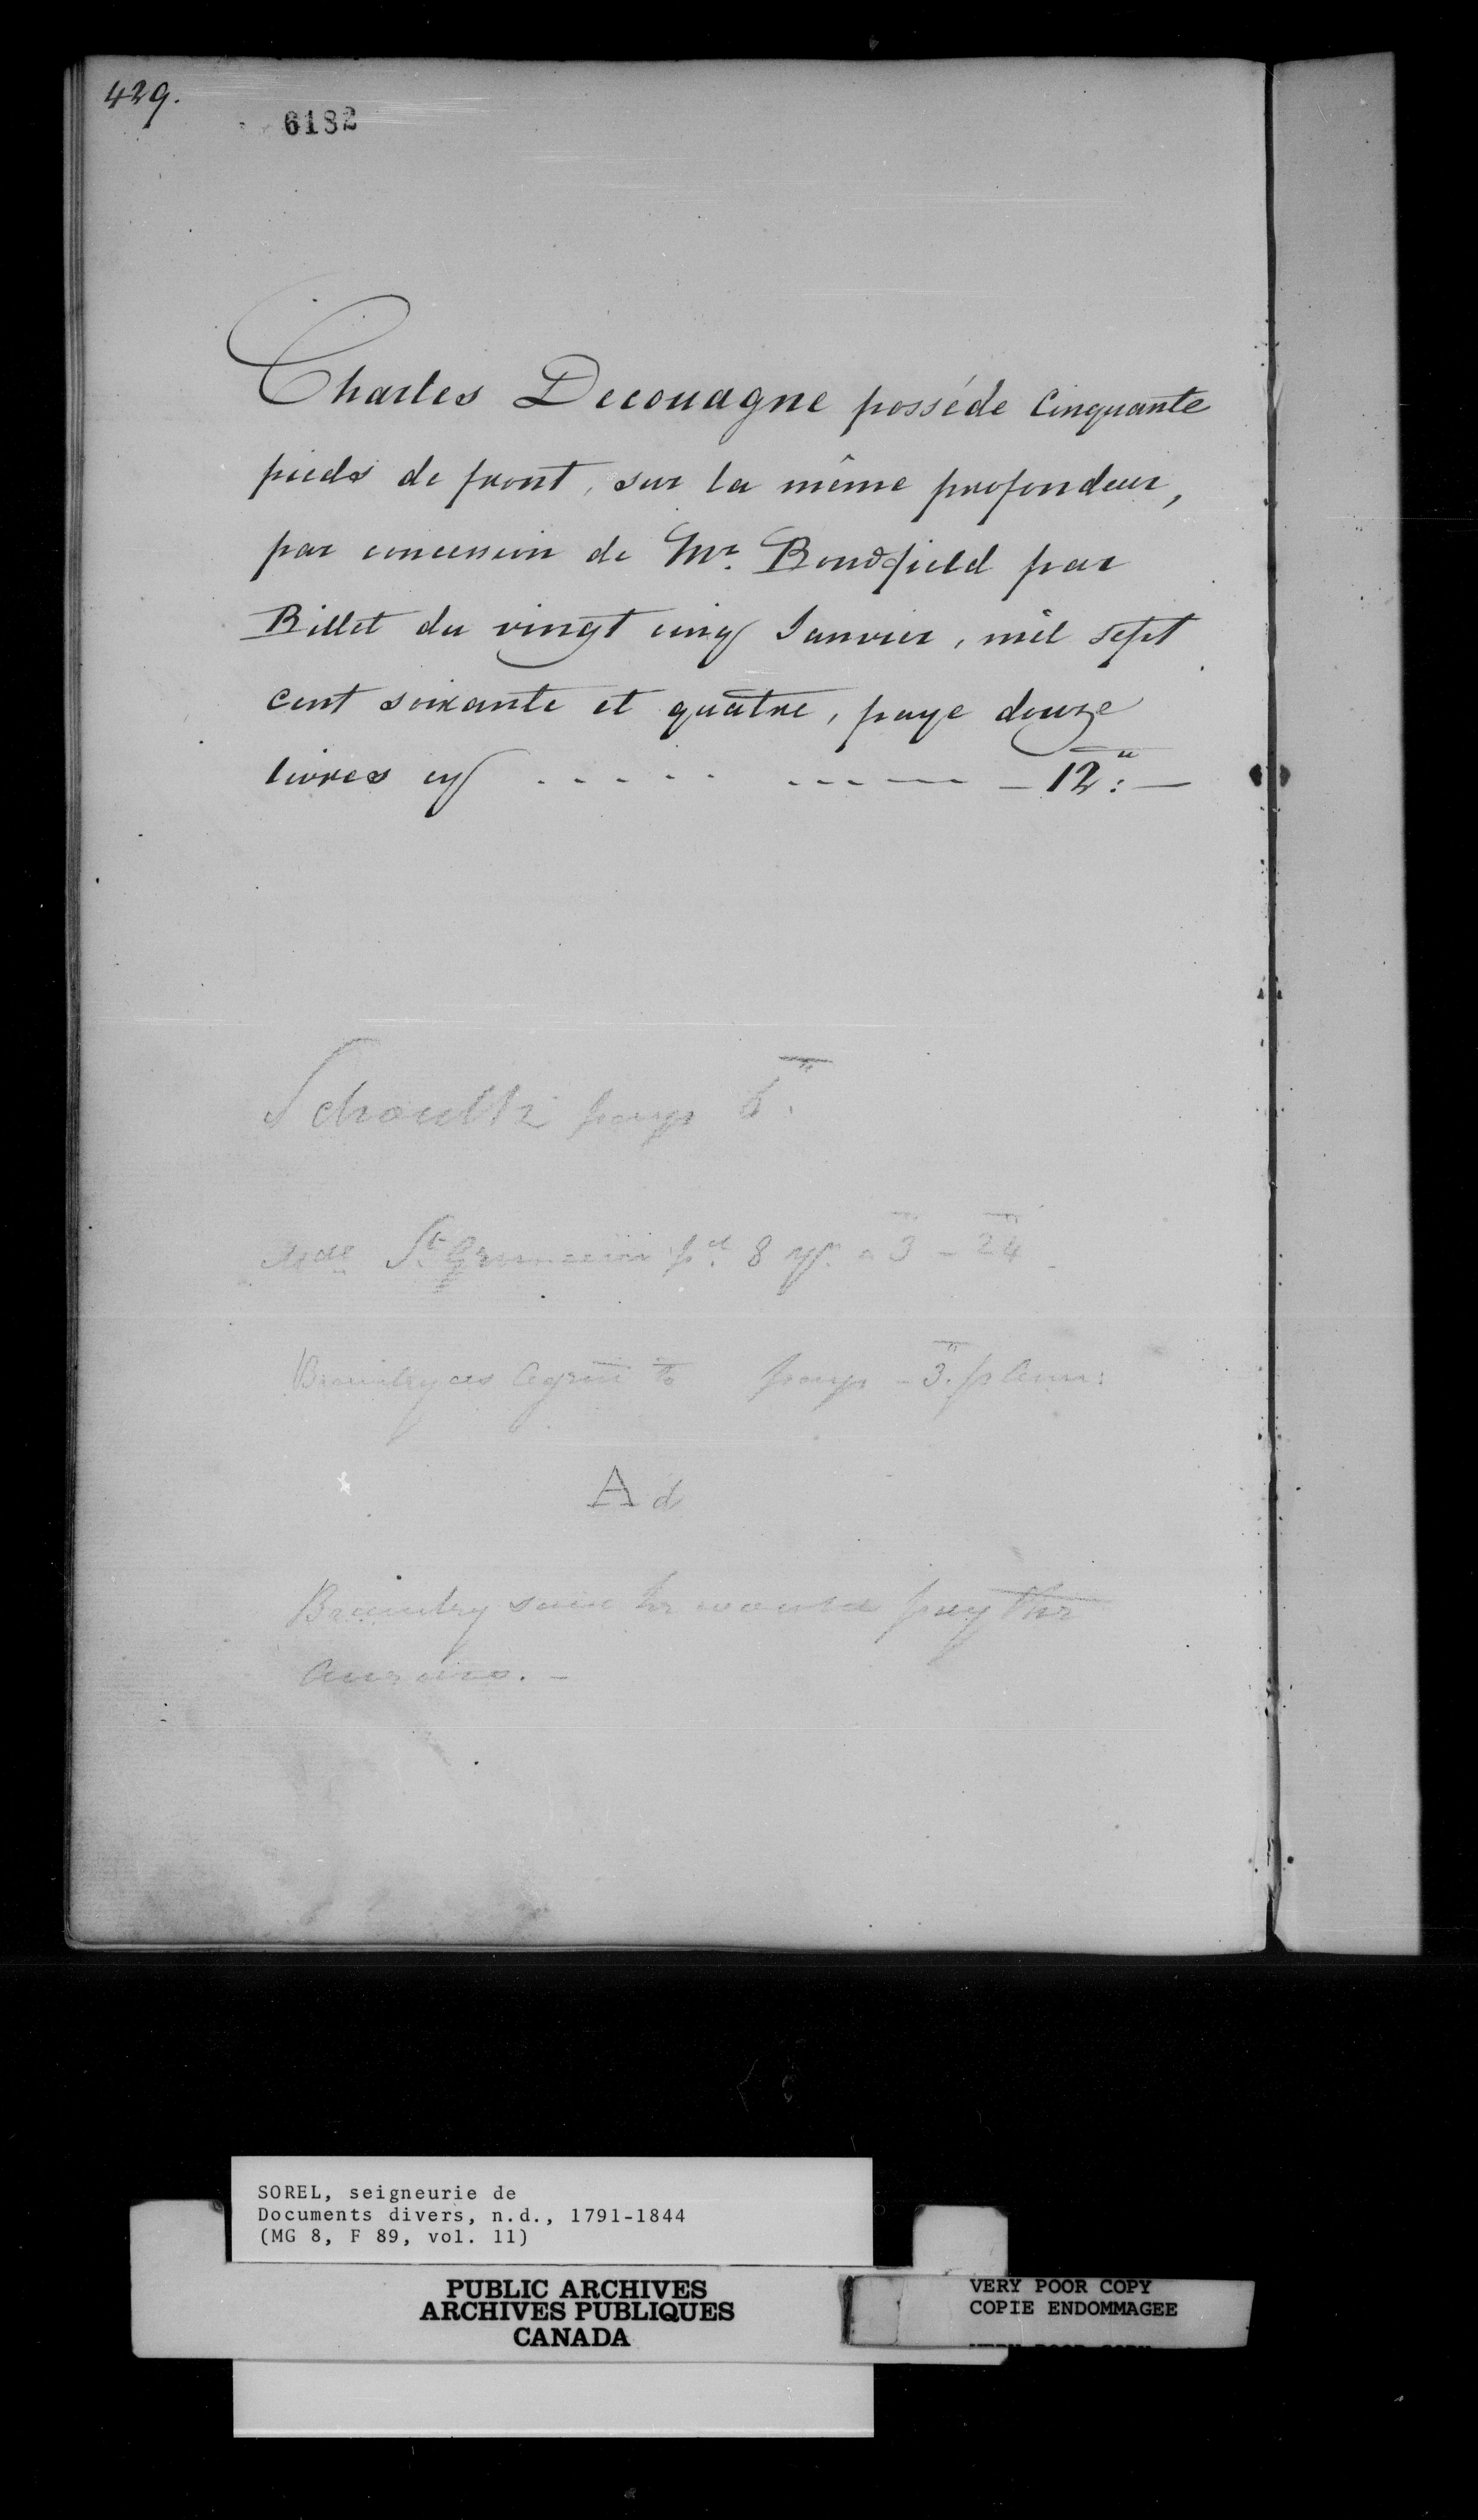 429.
6182
Charles Decouagne posséde Cinquante
pieds de front, sur la même profondeur,
par concession de Mr. Bondfield par
Billet du vingt cinq Janvier, mil sept
cent soixante et quatre, paye douze
livres cy - - - - - - - - - - 12":—
Schoultz pays 6
Mde St. pd. 8 yrs. a 3 - 24
agreed to pay - 3. p Ann:
Ad
said he would pay the
SOREL, seigneurie de
Documents divers, n.d., 1791-1844
(MG 8, F 89, vol. 11)
PUBLIC ARCHIVES
ARCHIVES PUBLIQUES
CANADA
VERY POOR COPY
COPIE ENDOMMAGEE